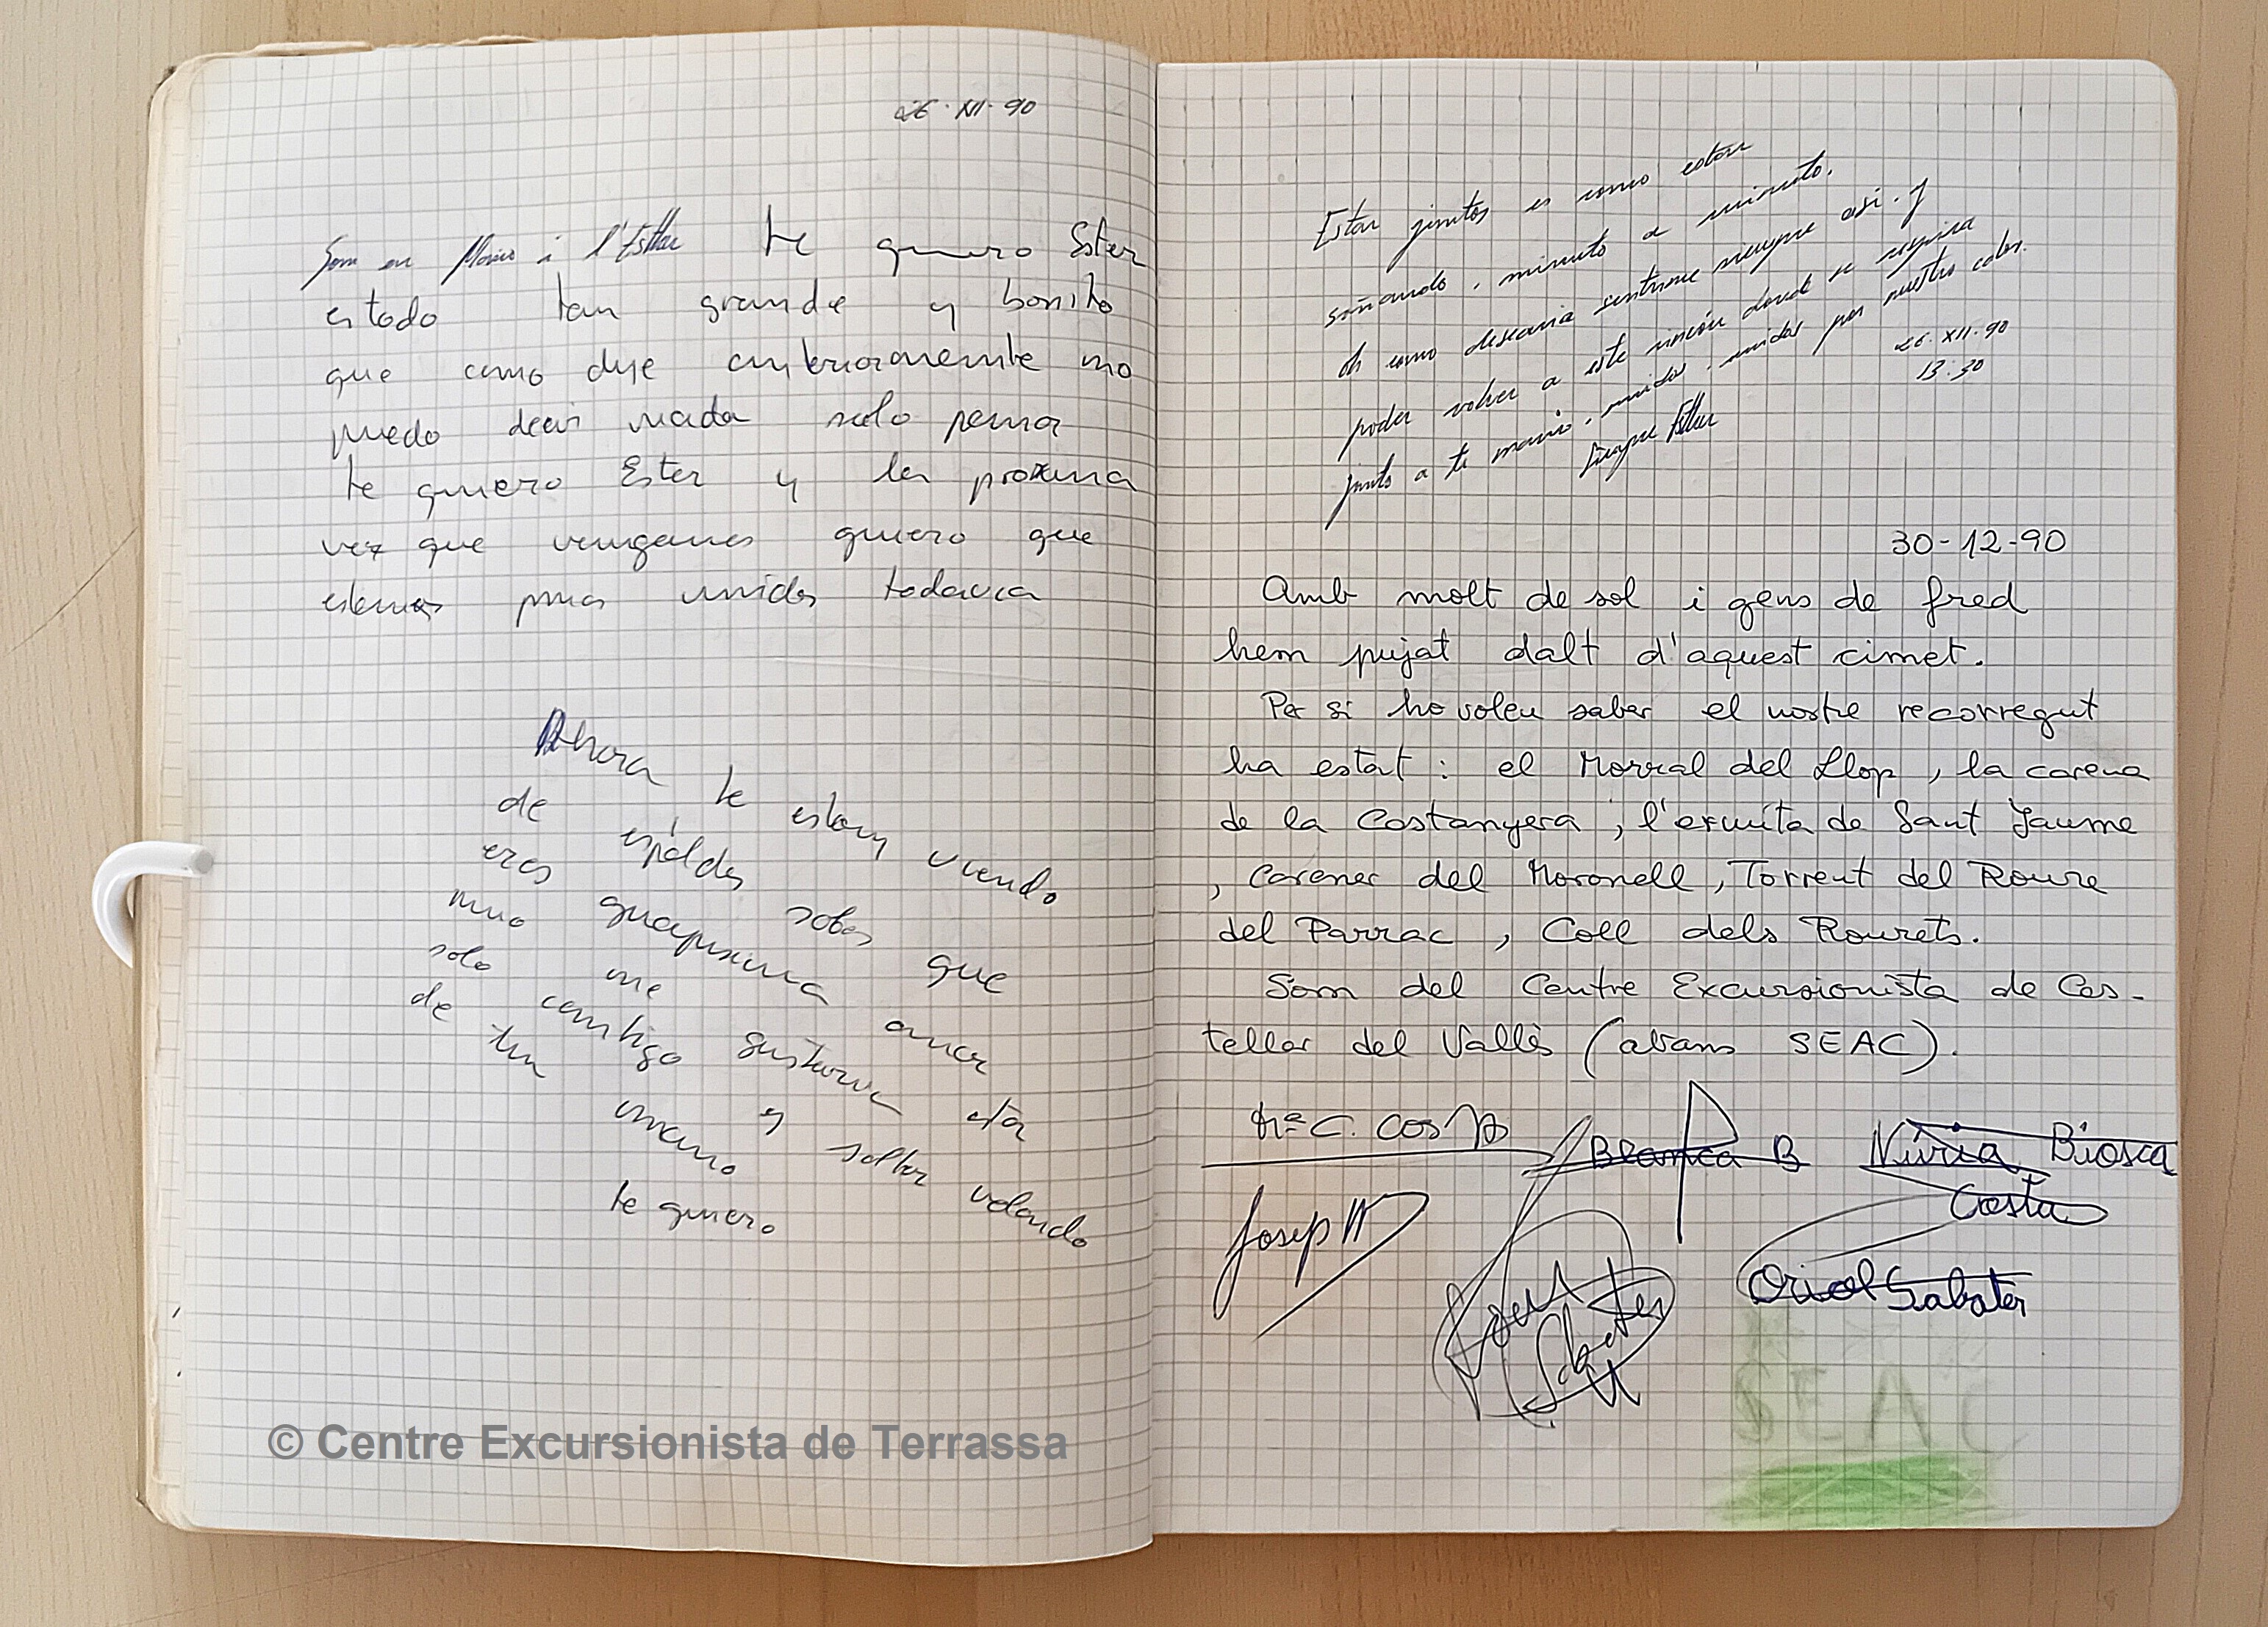 26·XII·90
Som en Mario i l'Esther te quiero Ester
es todo tan grande y bonito
que como dije anteriormente no
puedo decir nada solo pensar
te quiero Ester y la proxima
vez que vengamos quiero que
estemos mas unidos todavia
Ahora te estoy viendo
de espaldas sobes que
eres guapisima amor
mio me gustaria estar
solo contigo y soltar volando
de tu mano
te quiero
Estar juntos es como estar
soñando, minuto a minuto.
Oh como desearia sentirme siempre asi. y
poder volver a este rincón donde se respira
junto a ti mario, unidos, unidos por nuestro calor.
Siempre Esther
26·XII·90
13:30
30-12-90
Amb molt de sol i gens de fred
hem pujat dalt d'aquest cimet.
Per si ho voleu saber el nostre recorregut
ha estat: el Morral del Llop, la carena
de la Castanyera, l'ermita de Sant Jaume
, Carener del Moronell, Torrent del Roure
del Parrac, Coll dels Rourets.
Som del Centre Excursionista de Cas-
tellar del Vallès (abans SEAC).
Mª C. Cos
Blanca B
Núria Biosca
Costa
Josep M
Oriol Sabater
SEAC
© Centre Excursionista de Terrassa